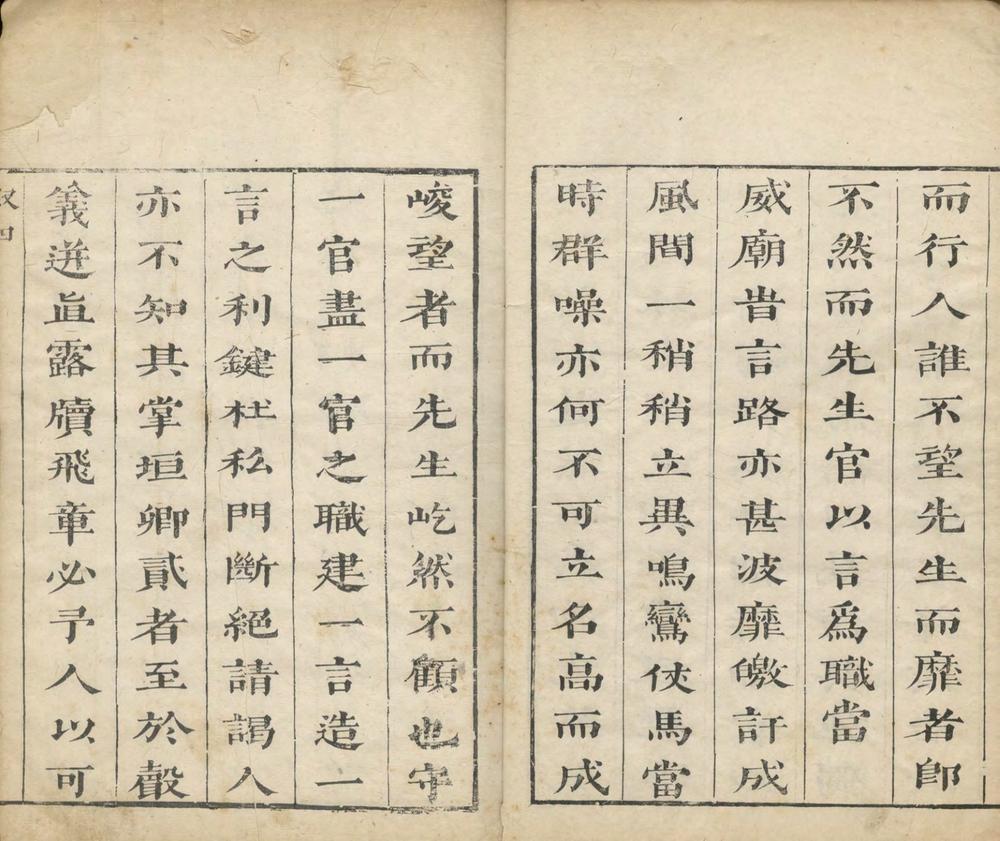 而行人誰不望先生而靡者卽
不然而先生官以言爲職當
威廟旹言路亦甚波靡皦訐成
風間一稍稍立異鳴鸞伏馬當
時群噪亦何不可立名高而成
峻望者而先生屹然不顧也守
一官盡一官之職建一言造一
言之利鍵杜私門斷絕請謁人
亦不知其掌垣卿貳者至於轂
義迸眞露牘飛章必予人以可
叙四